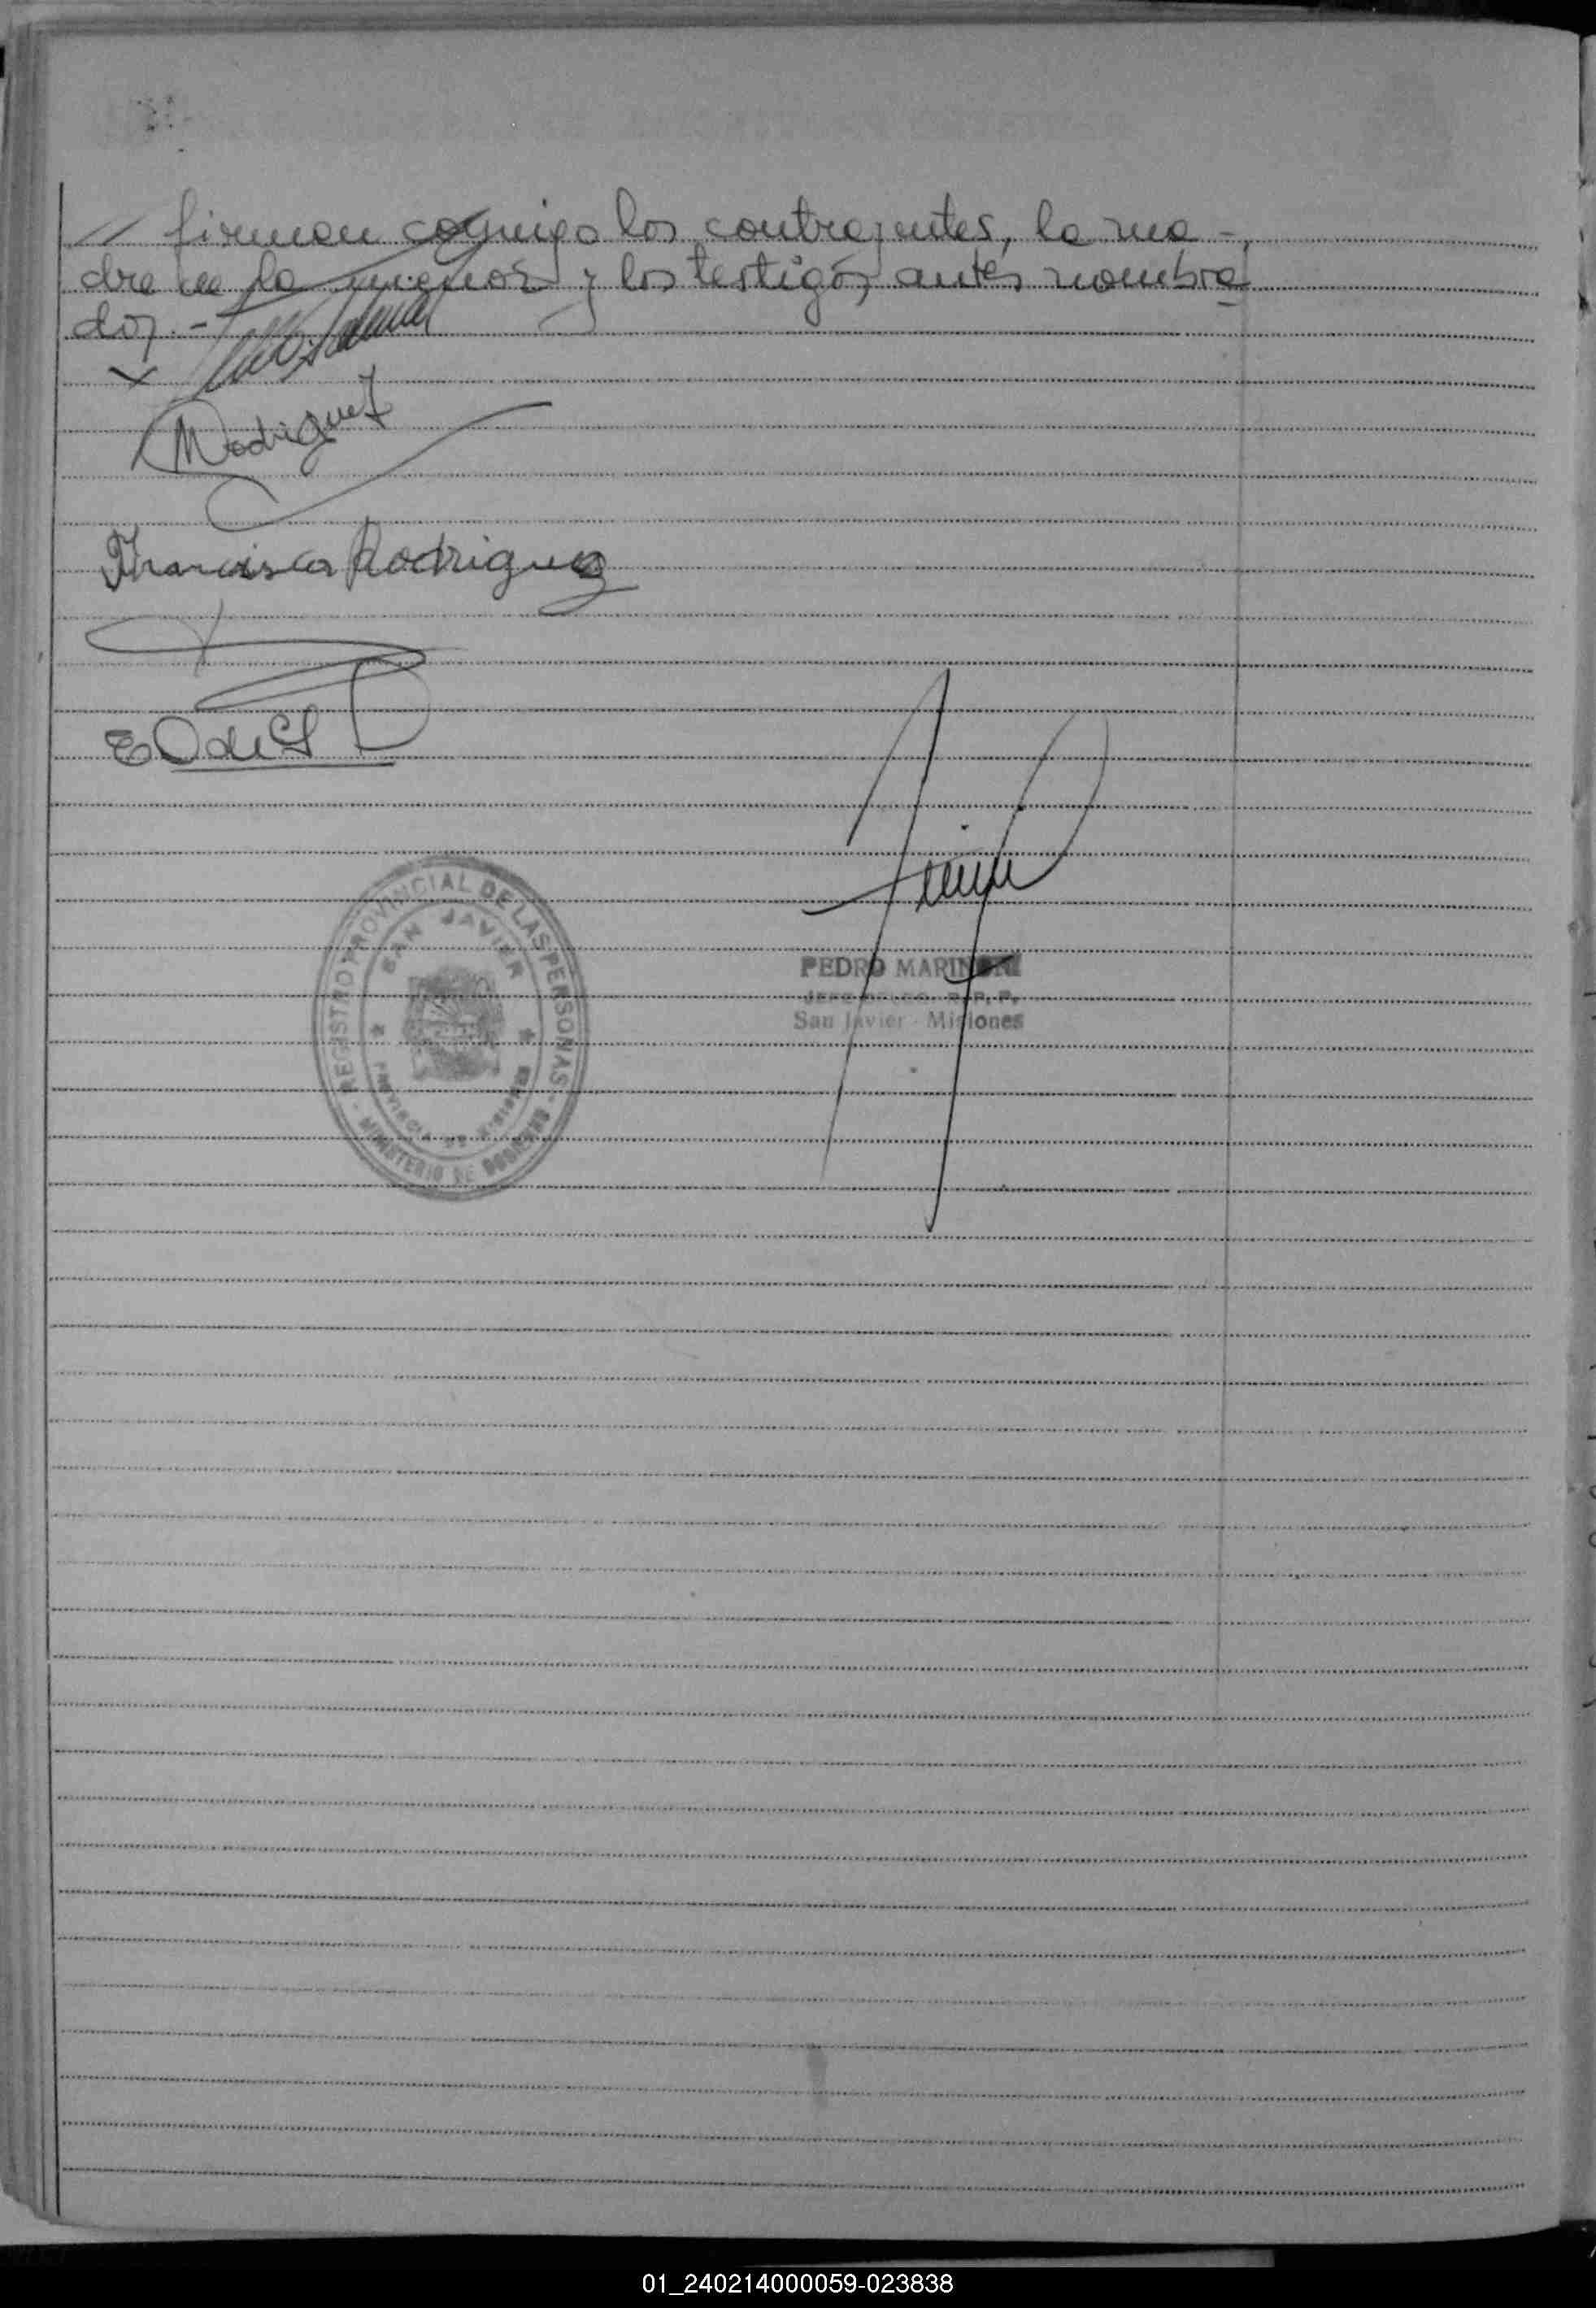 // firman conmigo los contrayentes, la ma-
dre de la menor y los testigos antes nombra
dos.-
MRodriguez
Francisca Rodriguez
REGISTRO PROVINCIAL DE LAS PERSONAS
SAN JAVIER
PROVINCIA DE MISIONES
- MINISTERIO DE GOBIERNO -
PEDRO MARINONI
JEFE DELEG. R. P. P.
San Javier - Misiones
01_240214000059-023838